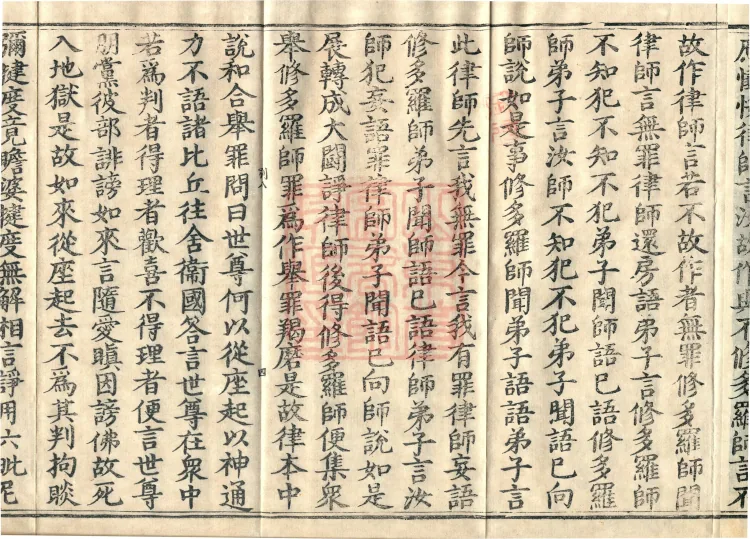 懺悔律師言汝故作與不修多羅師言不
故作律師言若不故作者無罪修多羅師聞
律師言無罪律師還房語弟子言修多羅師
不知犯不知不犯弟子聞師語已語修多羅
師弟子言汝師不知犯不犯弟子聞語已向
師說如是事修多羅師聞弟子語語弟子言
此律師先言我無罪今言我有罪律師妄語
修多羅師弟子聞師語已語律師弟子言汝
師犯妄語罪律師弟子聞語已向師說如是
展轉成大鬪諍律師後得修多羅師便集衆
舉修多羅師罪爲作舉罪羯磨是故律本中
四
說和合舉罪問曰世尊何以從座起以神通
力不語諸比丘往舍衞國答言世尊在衆中
若爲判者得理者歡喜不得理者便言世尊
朋黨彼部誹謗如來言隨愛瞋因謗佛故死
入地獄是故如來從座起去不爲其判拘睒
彌揵度竟瞻婆揵度無解相言諍用六毗尼